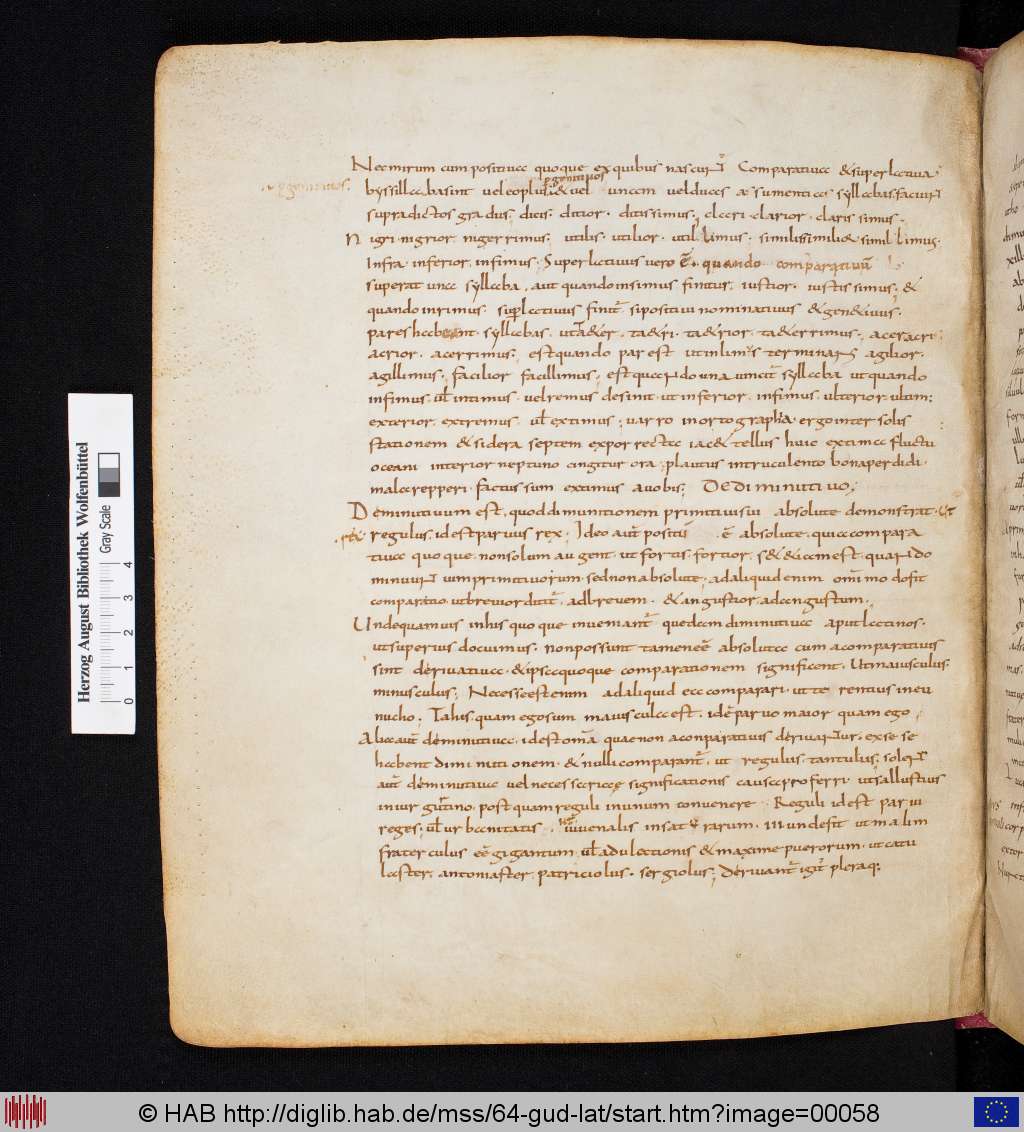 Nec mirum cum positiua quoque ex quibus nascunt Comparatiua & superlatiua
p genitiuos
bys sillabas sint uel eo plus & uel unam uel duas assumentia syllabas faciunt
supradictos gradus; diues. ditior. ditissimus; clari. clarior. clarissimus.
Nigri nigrior. nigerrimus; utilis. utilior. utillimus. similis similior simillimus.
Infra. inferior. infimus. Superlatiuus uero ē. quando comparatiuū
superat una syllaba. aut quando insimus finitus; iustior. iustissimus; &
quando inrimus. suplatiuus finit. si positiui nominatiuus & genetiuus.
pares habent syllabas. ut taeter. taetri. taetrior. taeterrimus; acer acri.
acrior. acerrimus; est quando par est ut in limus terminans agilior.
agillimus; facilior facillimus; est quando una uincit syllaba ut quando
infimus ul intimus. uel remus desinit. ut inferior. infimus. ulterior. ultim;
exterior. extremus. ul extimus; uarro in ortographia. ergo inter solis
stationem & sidera septem exporrecta iac& tellus huic extima fluctu
oceani interior neptuno cingitur ora; plautus in truculento bona perdidi.
mala repperi. factus sum extimus auobis; DE DIMINUTIUO;
Deminutiuum est. quod dimunitionem primitiui sui absolute demonstrat. ut
rex. regulus. id est paruus rex; Ideo aut positū ē absolute. quia compara
tiua quoque. non solum augent. ut fortis. fortior. s& & iam est. quando
minuunt uim primitiuorum. sed non absolute. ad aliquid enim omnimodo fit
comparatio. ut breuior dicit. ad breuem. & angustior. ad angustum.
Unde quamuis in his quoque inueniant quedam diminutiua aput latinos.
ut superius docuimus. non possunt tamen eē absoluta cum a comparatiuis
sint deriuatiua. & ipsa quoque comparationem significent. Ut maiusculus.
minusculus; Necesse est enim ad aliquid ea comparari. ut terentius in eu
nucho; Tahis. quam ego sum maiuscula est. id ē paruo maior quam ego;
Alia aut deminutiua. id est om̄a quae non a conparatiuis deriuantur. ex se se
habent diminutionem. & nulli comparant. ut regulus. tantulus; solent
aut deminutiua uel necessariae significationis causa proferri. ut sallustius
in iugurtino. postquam reguli in unum conuenere. Reguli id est parui
reges; ul urbanitatis. ut iuuenalis in satyrarum. III unde fit ut malim
fraterculus eē gigantum; ul adulationis & maxime puerorum. ut catu
laster. antoniaster. patriciolus. sergiolus; Deriuant igit pleraq;
Herzog August Bibliothek Wolfenbüttel
Gray Scale
0 1 2 3 4
© HAB http://diglib.hab.de/mss/64-gud-lat/start.htm?image=00058